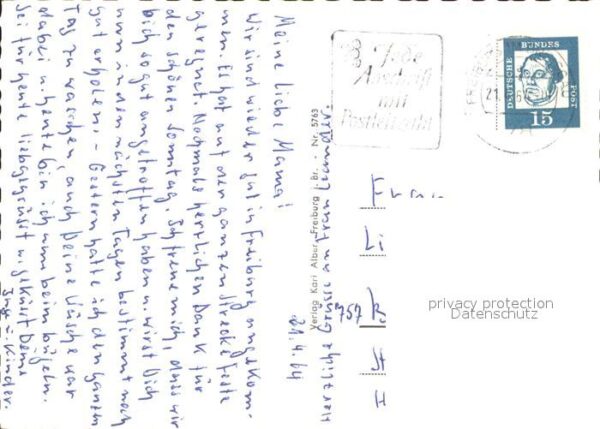 21.4.64
Meine liebe Mama!
Wir sind wieder gut in Freiburg angekom-
men. Es hat auf der ganzen Strecke feste
geregnet. Nochmals herzlichen Dank für
den schönen Sonntag. Ich freue mich, dass wir
Dich so gut angetroffen haben u. wirst Dich
nun in den nächsten Tagen bestimmt noch
gut erholen. - Gestern hatte ich den ganzen
Tag zu waschen, auch Deine Wäsche war
dabei u. heute bin ich nun beim bügeln.
Sei für heute liebgegrüsst u. geküsst Deine
Inge u. Kinder.
Herzliche Grüsse an Frau
Verlag Karl Alber, Freiburg i. Br. · Nr. 5763
Jede
Anschrift
mit
Postleitzahl
21.
DEUTSCHE BUNDESPOST
15
Frau
Li
757
St
II
privacy protection
Datenschutz